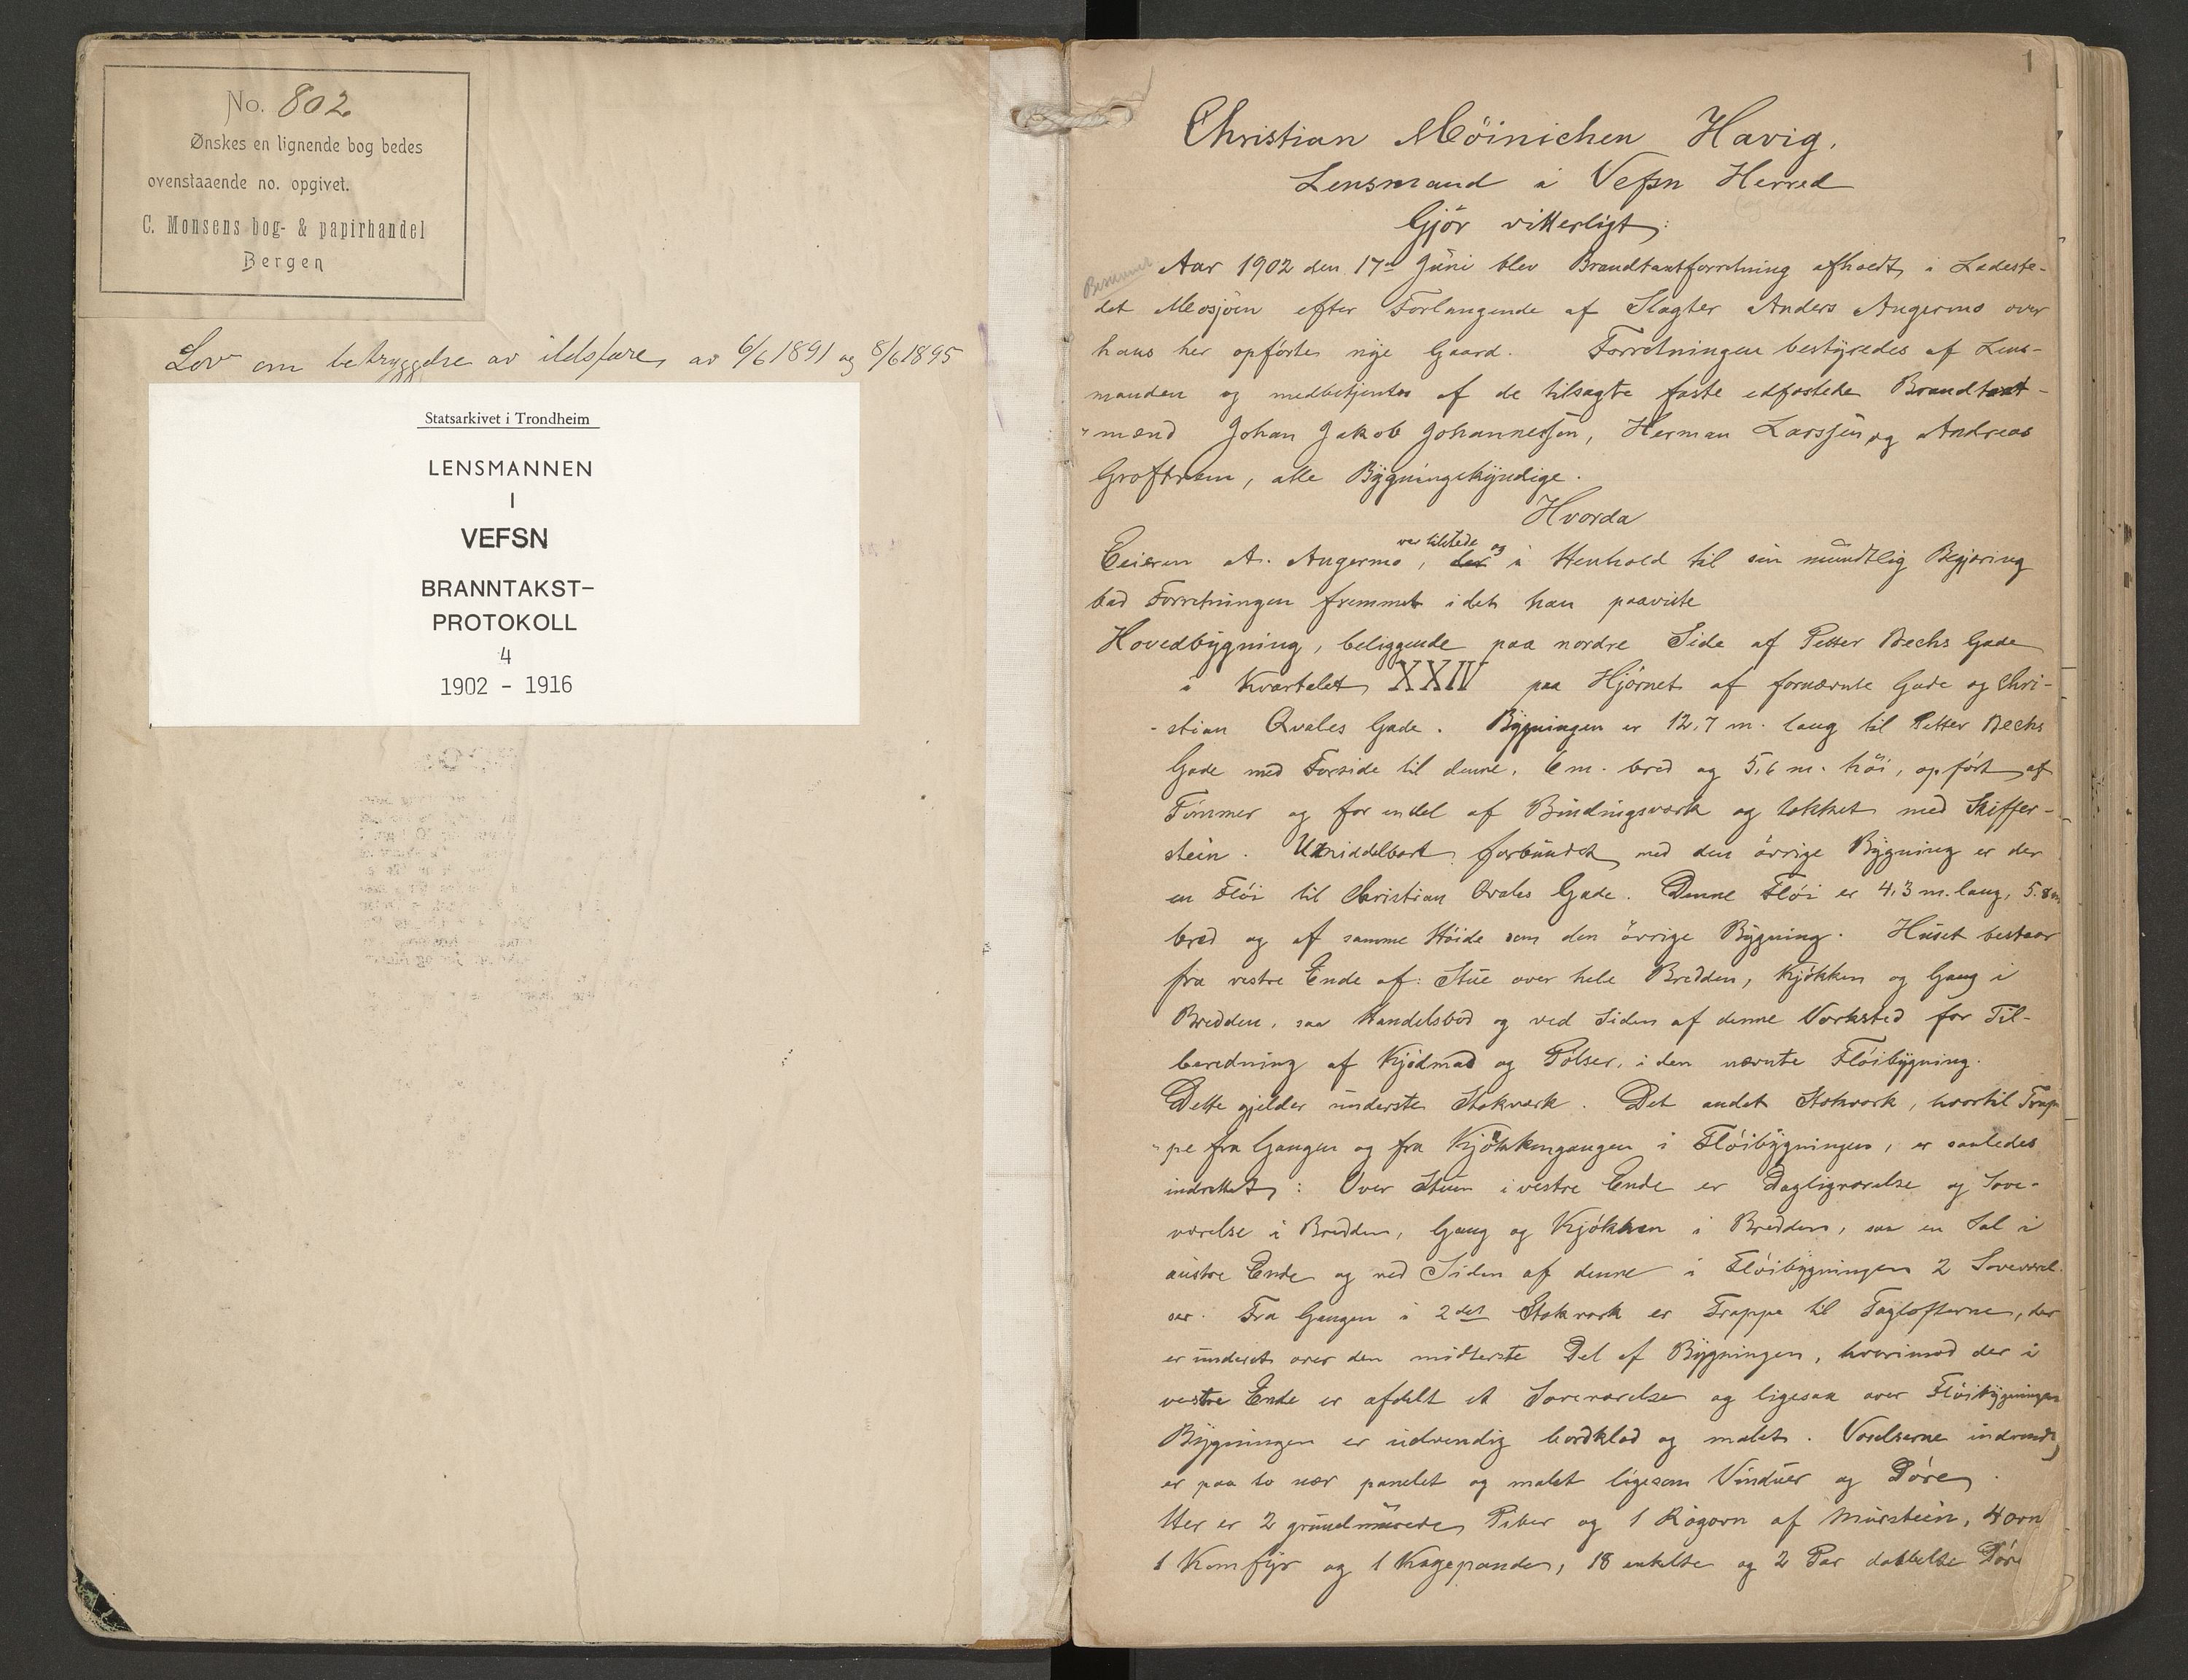 No. 802
Ønskes en lignende bog bedes
ovenstaaende no. opgivet.
C. Monsens bog- & papirhandel
Bergen
Lov om betryggelse av ildsfare, av 6/6 1891 og 8/6 1895
Statsarkivet i Trondheim
LENSMANNEN
I
VEFSN
BRANNTAKST-
PROTOKOLL
4
1902 - 1916
1
Christian Möinichen Havig,
Lensmand i Vefsn Herred
Gjör vitterligt:
Aar 1902 den 17de Juni blev Brandtaxtforretning afholdt i Ladeste-
det Mosjöen efter Forlangende af Slagter Anders Angermo over
hans her opförte nye Gaard. Forretningen bestyredes af Lens-
manden og medbetjentes af de tilsagte faste edfæstede Brandtaxt-
mænd Johan Jakob Johannessen, Herman Larssen og Andreas
Groftrem, alle Bygningskyndige.
Hvorda
Eieren A. Angermo, var tilstede og i Henhold til sin mundtlig Begjæring
bad Forretningen fremmet idet han paaviste
Hovedbygning, beliggende paa nordre Side af Petter Bechs Gade
i Kvartalet XXIV paa Hjörnet af fornævnte Gade og Chri-
-stian Qvales Gade. Bygningen er 12,7 m. lang til Petter Bechs
Gade med Forside til denne, 6 m. bred og 5,6 m. höi, opfört af
Tömmer og for en del af Bindingsværk og tækket med Skiffer-
stein. Umiddelbart forbundet med den övrige Bygning er der
en Flöi til Christian Qvales Gade. Denne Flöi er 4,3 m. lang, 5.8 m
bred og af samme Höide som den övrige Bygning. Huset bestaar
fra vestre Ende af: Stue over hele Bredden, Kjökken og Gang i
Bredden, saa Handelsbod og ved Siden af denne Værksted for Til-
beredning af Kjödmad og Pölser, i den nævnte Flöibygning.
Dette gjelder underste Stokværk. Det andet Stokværk, hvortil Trap
-pe fra Gangen og fra Kjökkengangen i Flöibygningen, er saaledes
indrettet: Over Stuen i vestre Ende er Dagligværelse og Sove-
værelse i Bredden, Gang og Kjökken i Bredden, saa en Sal i
austre Ende og ved Siden af denne i Flöibygningen 2 Soveværel-
ser. Fra Gangen i 2det Stokværk er Trappe til Taglofterne, der
er uindredt over den midterste Del af Bygningen, hvorimod der i
vestre Ende er afdelt et Soveværelse og ligesaa over Flöibygningen
Bygningen er udvendig bordklæd og malet. Værelserne indvendig
er paa to nær panelet og malet ligesom Vinduer og Döre.
Her er 2 grundmurede Piber og 1 Rögovn af Murstein, 4 ovn
1 Komfyr og 1 Kagepande, 18 enkelte og 2 Par dobbelte Döre